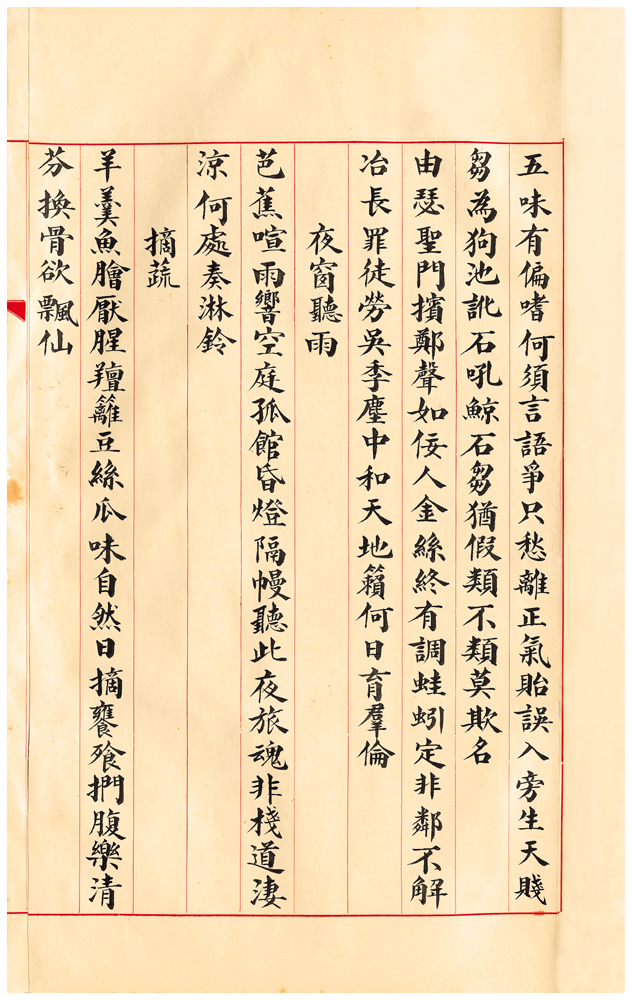 五味有偏嗜何須言語爭只愁離正氣貽誤入旁生天賤
芻為狗池訛石吼鯨石芻猶假類不類莫欺名
由瑟聖門擯鄭聲如佞人金絲終有調蛙蚓定非鄰不解
冶長罪徒勞吳季塵中和天地籟何日育羣倫
夜窗聽雨
芭蕉喧雨響空庭孤館昏燈隔幔聽此夜旅魂非棧道淒
涼何處奏淋鈴
摘蔬
羊羹魚膾厭腥羶籬豆絲瓜味自然日摘饔飧捫腹樂清
芬換骨欲飄仙